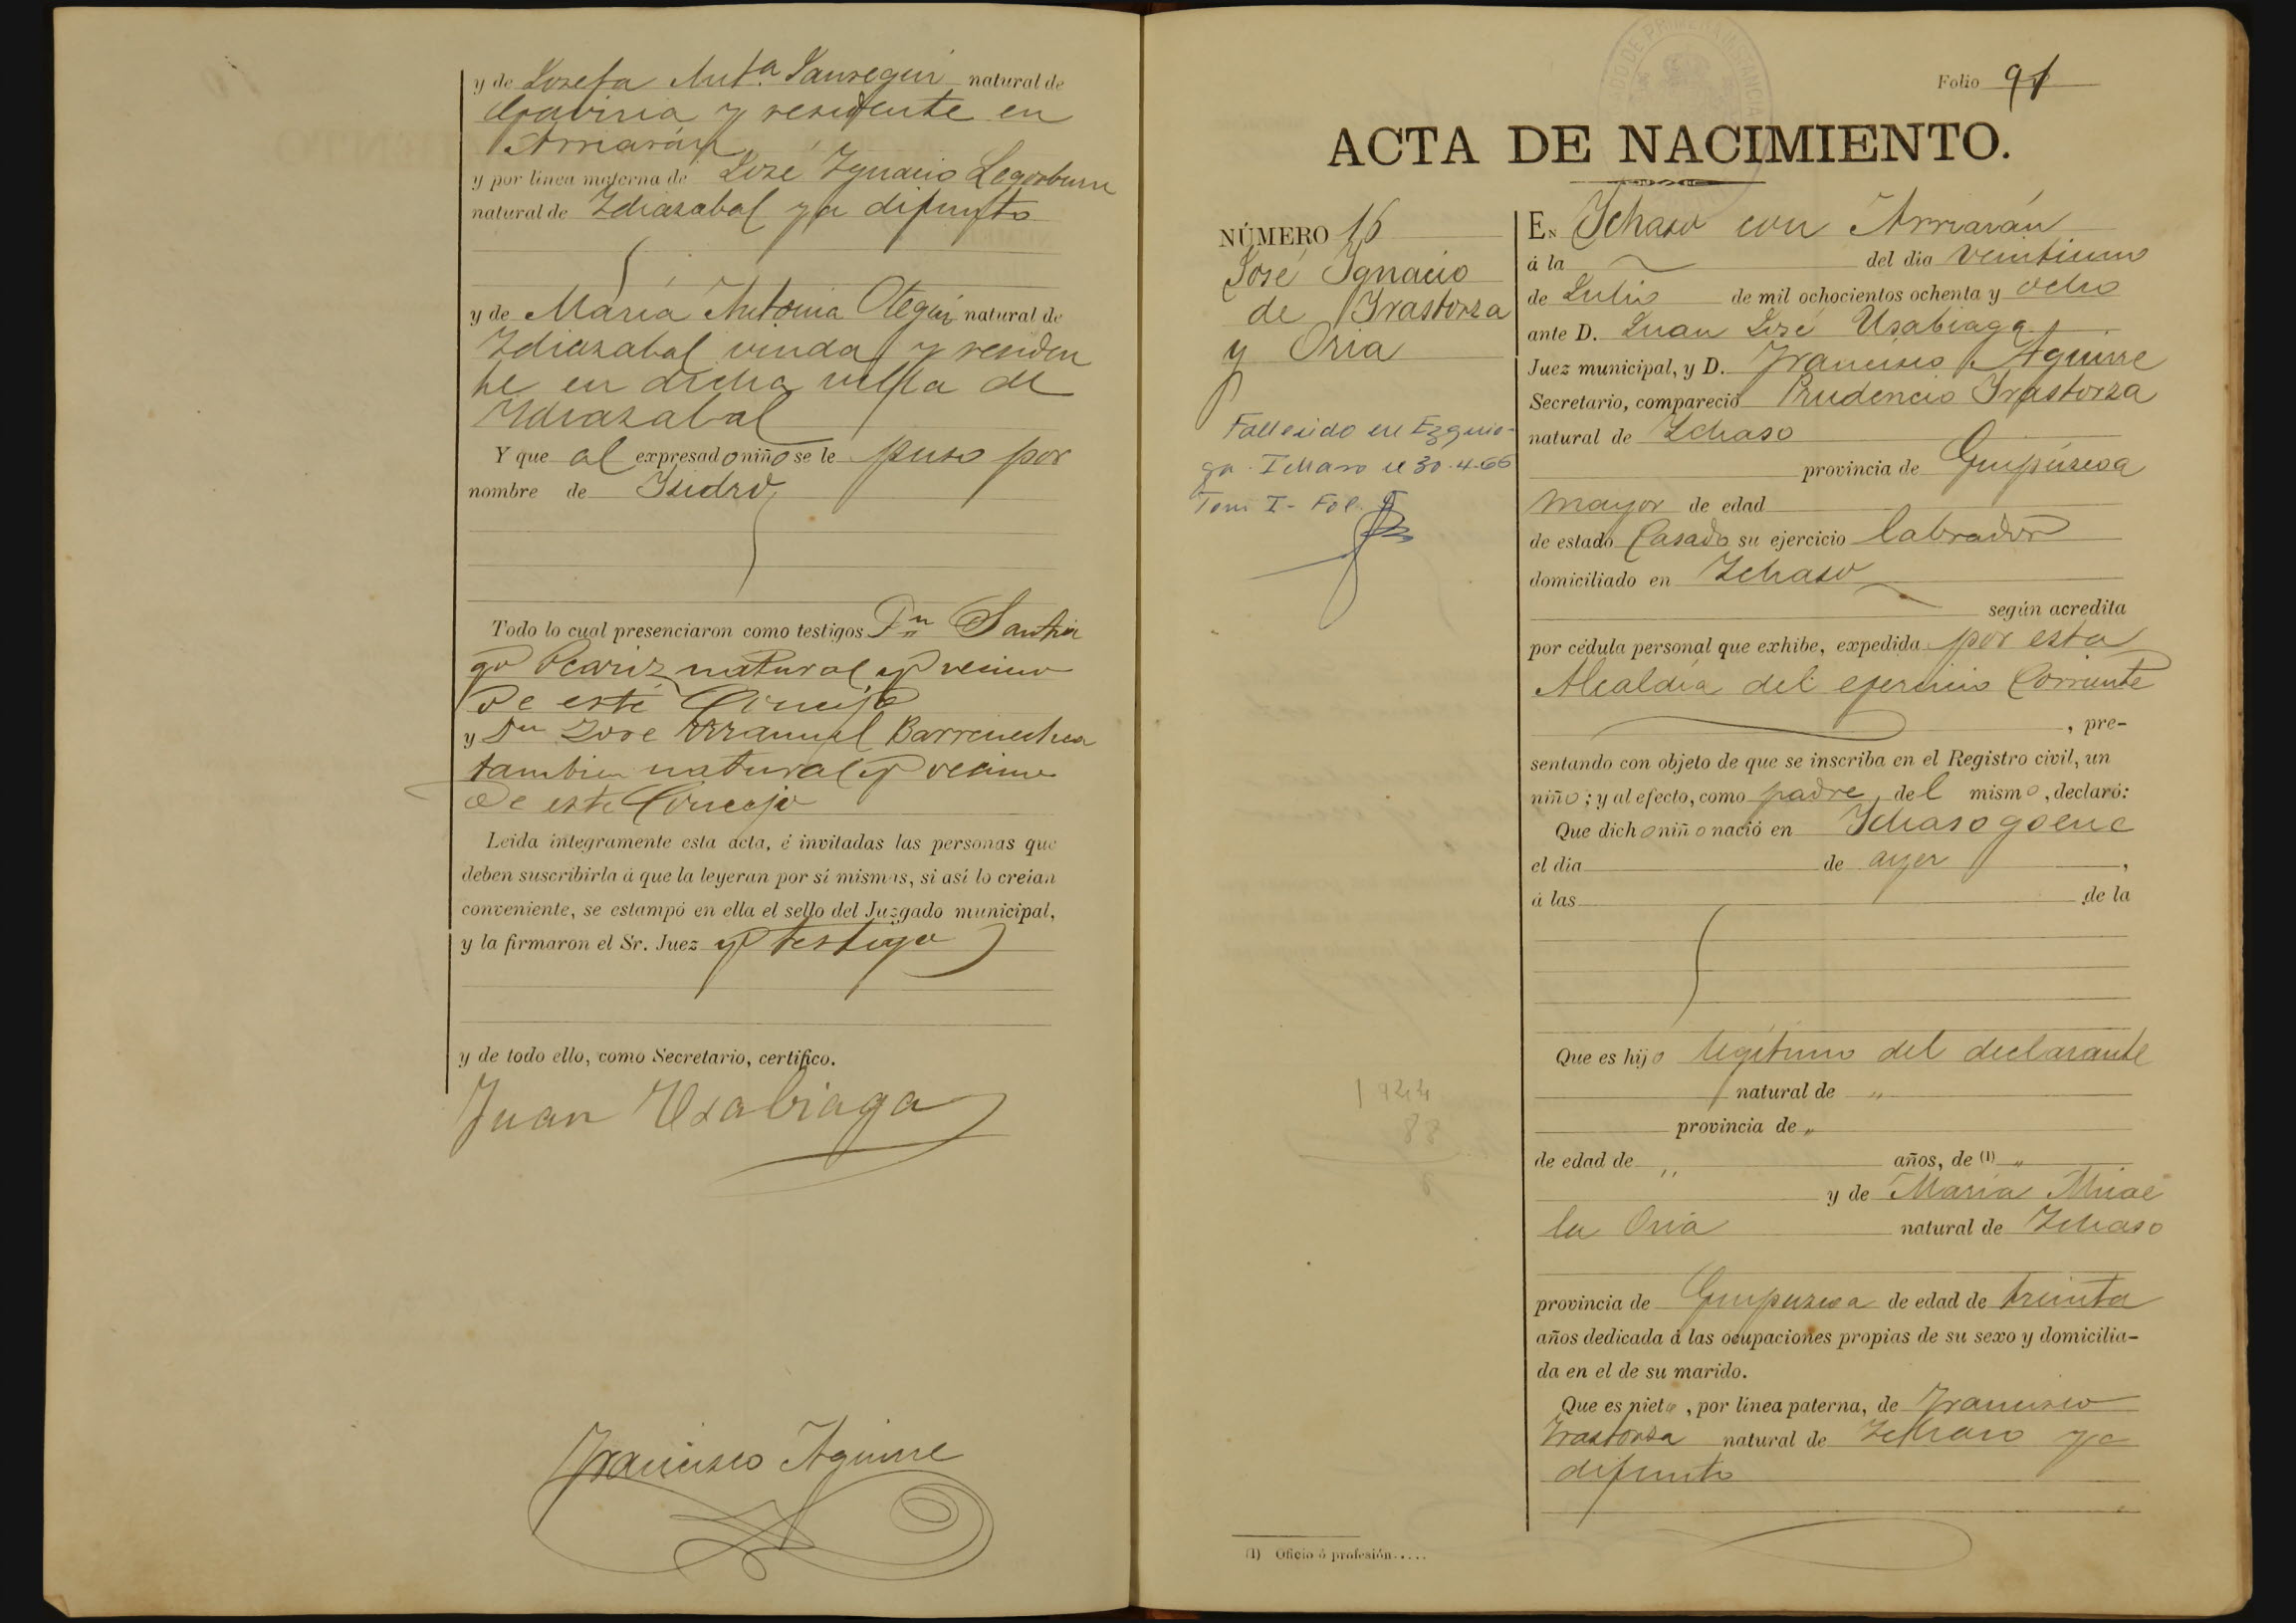 y de Josefa Ant.ª Jauregui natural de
Gaviria y residente en
Arriarán
y por línea materna de José Ygnacio Legorburu
natural de Ydiazabal ya difunto
y de María Antonia Otegui natural de
Ydiazabal viuda y residen
te en dicha villa de
Ydiazabal
Y que al expresado niño se le puso por
nombre de Ysidro
Todo lo cual presenciaron como testigos Dn Santia
go natural y vecino
de este Concejo
y Dn Jose Manuel Barrenechea
tambien natural y vecino
de este Concejo
Leida íntegramente esta acta, é invitadas las personas que
deben suscribirla á que la leyeran por sí mismas, si así lo creían
conveniente, se estampó en ella el sello del Juzgado municipal,
y la firmaron el Sr. Juez y testigo
y de todo ello, como Secretario, certifico.
Juan Usabiaga
Francisco Aguirre
Folio 91
ACTA DE NACIMIENTO.
NÚMERO 16
José Ygnacio
de Yrastorza
y Oria
Fallecido en Ezquio-
ga-Ichaso el 30-4-66
Tom I- Fol.
1944
88
EN Ychaso con Arriarán
á la del dia veintiuno
de Julio de mil ochocientos ochenta y ocho
ante D. Juan José Usabiaga
Juez municipal, y D. Francisco Aguirre
Secretario, compareció Prudencio Yrastorza
natural de Ychaso
provincia de Guipúzcoa
mayor de edad
de estado Casado su ejercicio labrador
domiciliado en Ychaso
según acredita
por cédula personal que exhibe, expedida por esta
Alcaldía del ejercicio Corriente
, pre-
sentando con objeto de que se inscriba en el Registro civil, un
niño; y al efecto, como padre del mismo, declaró:
Que dicho niño nació en Ychasogoene
el día de ayer ,
á las de la
Que es hijo legítimo del declarante
natural de "
provincia de "
de edad de " años, de (1) "
y de María Micae
la Oria natural de Ychaso
provincia de Guipuzcoa de edad de treinta
años dedicada á las ocupaciones propias de su sexo y domicilia-
da en el de su marido.
Que es nieto, por línea paterna, de Francisco
Yrastorza natural de Ychaso ya
difunto
(1) Oficio ó profesión.....